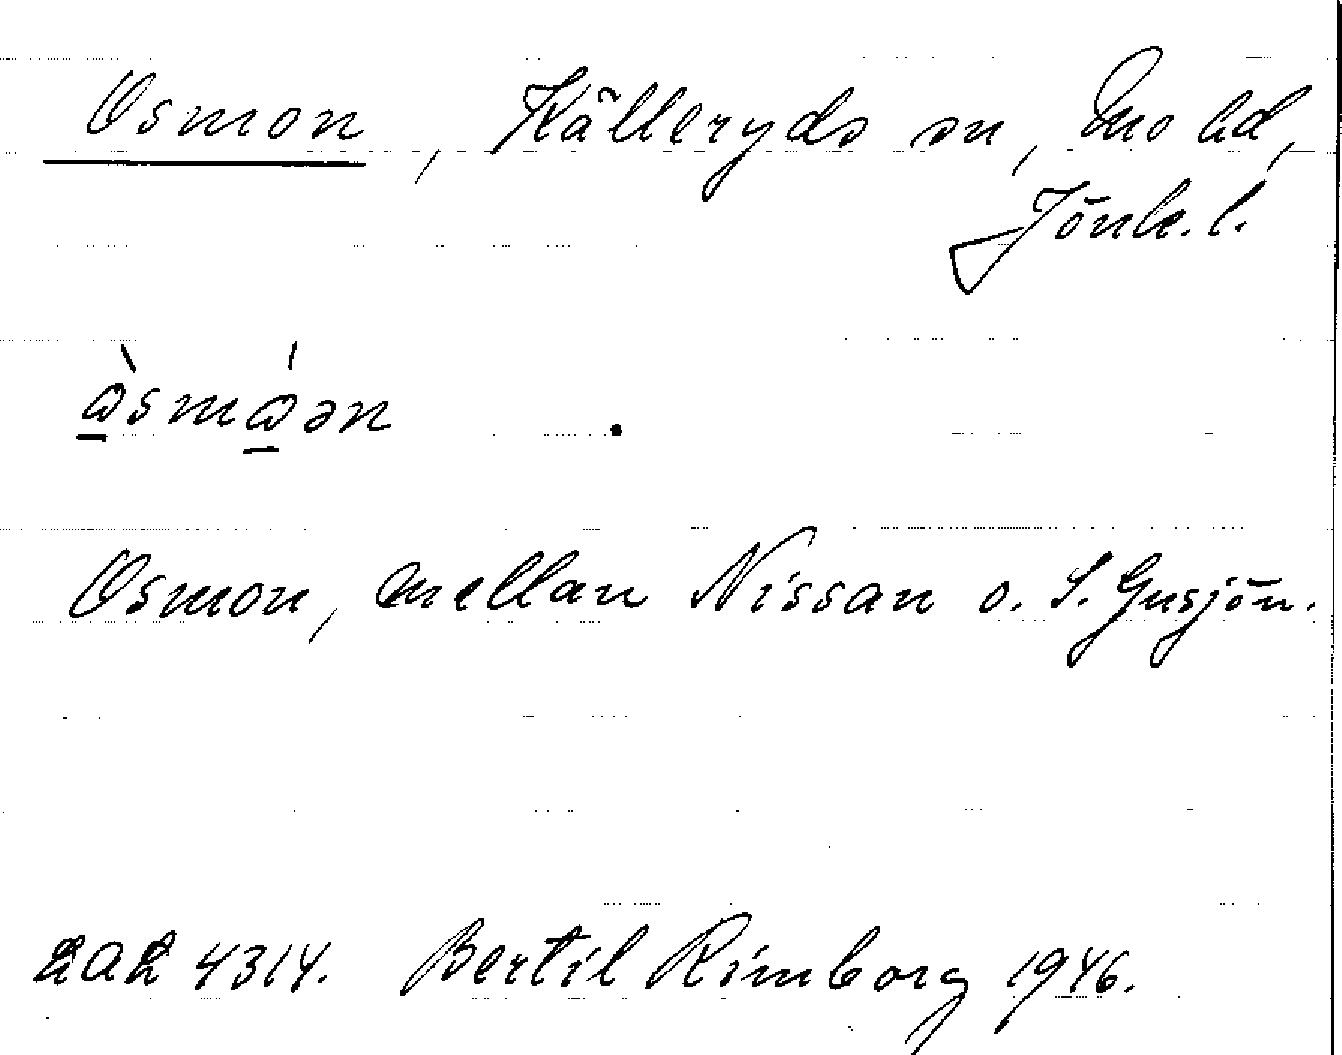 Osmon, Källeryds sn, Mo hd,
Jönk. l.
ò̱smó̱ən .
Osmon, mellan Nissan o. S. Gusjön.
LAL 4314. Bertil Rimborg 1946.